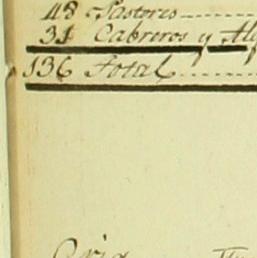 48 Pastores
31 Cabreros y
136 Total